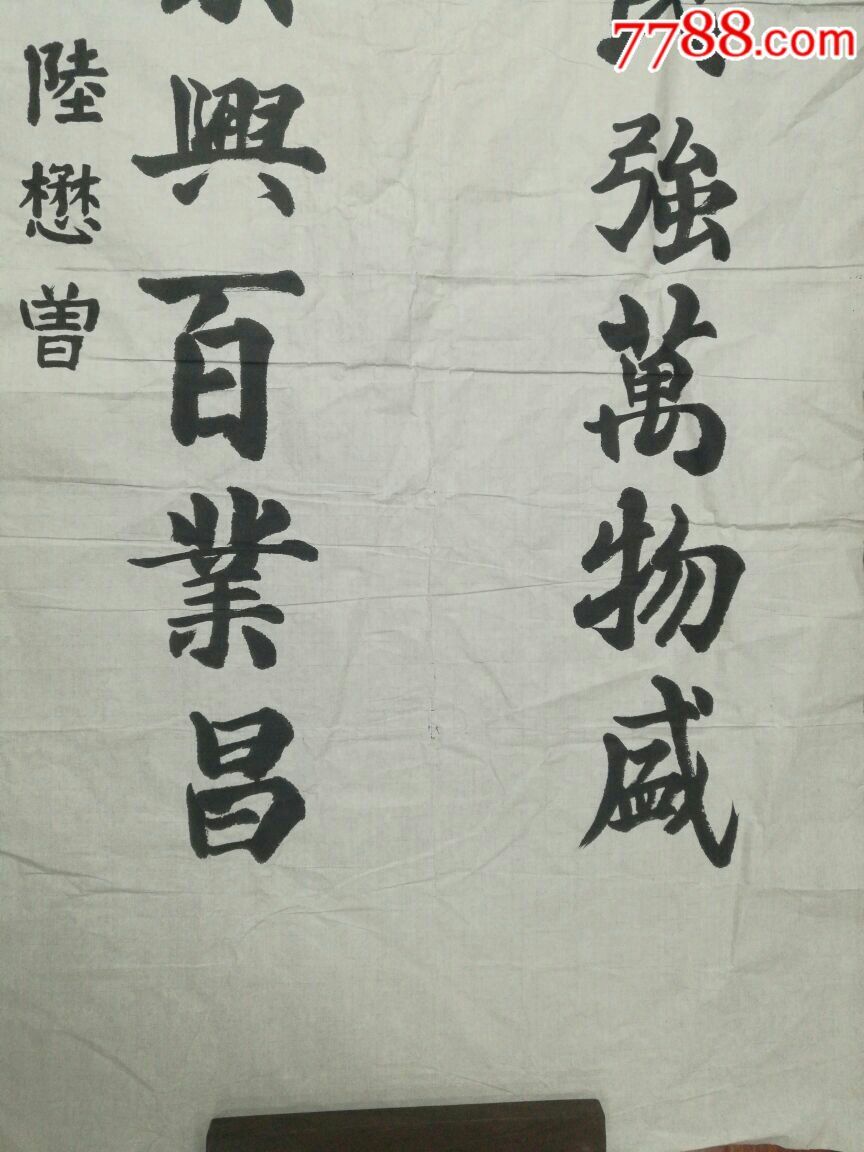 7788.com
強萬物盛
興百業昌
陸懋曽